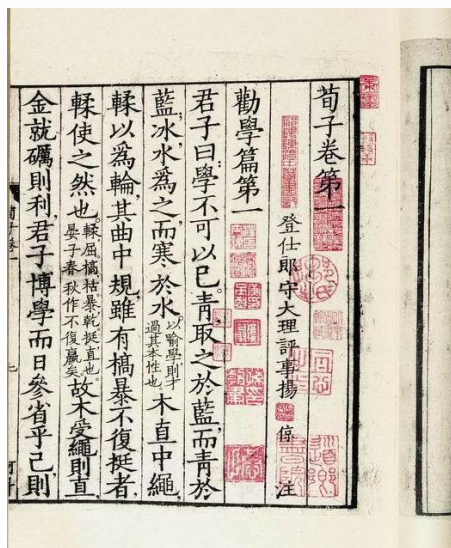 荀子卷第一
登仕郎守大理評事楊倞注
勸學篇第一
君子曰學不可以已青取之於藍而青於
藍冰水爲之而寒於水以喻學則才過其本性也木直中繩
輮以爲輪其曲中規雖有槁暴不復挺者
輮使之然也輮屈槁枯暴乾挺直也晏子春秋作不復贏矣故木受繩則直
金就礪則利君子博學而日參省乎己則